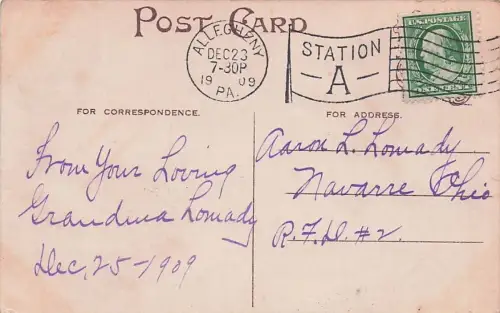 POST CARD
ALLEGHENY
DEC 23
7-30P
1909
PA.
STATION
A
U.S. POSTAGE
FOR CORRESPONDENCE.
FOR ADDRESS.
From Your Loving
Grandma Lomady
Dec, 25-1909
Aaron L. Lomady
Navarre Ohio
R.F.D. #2.